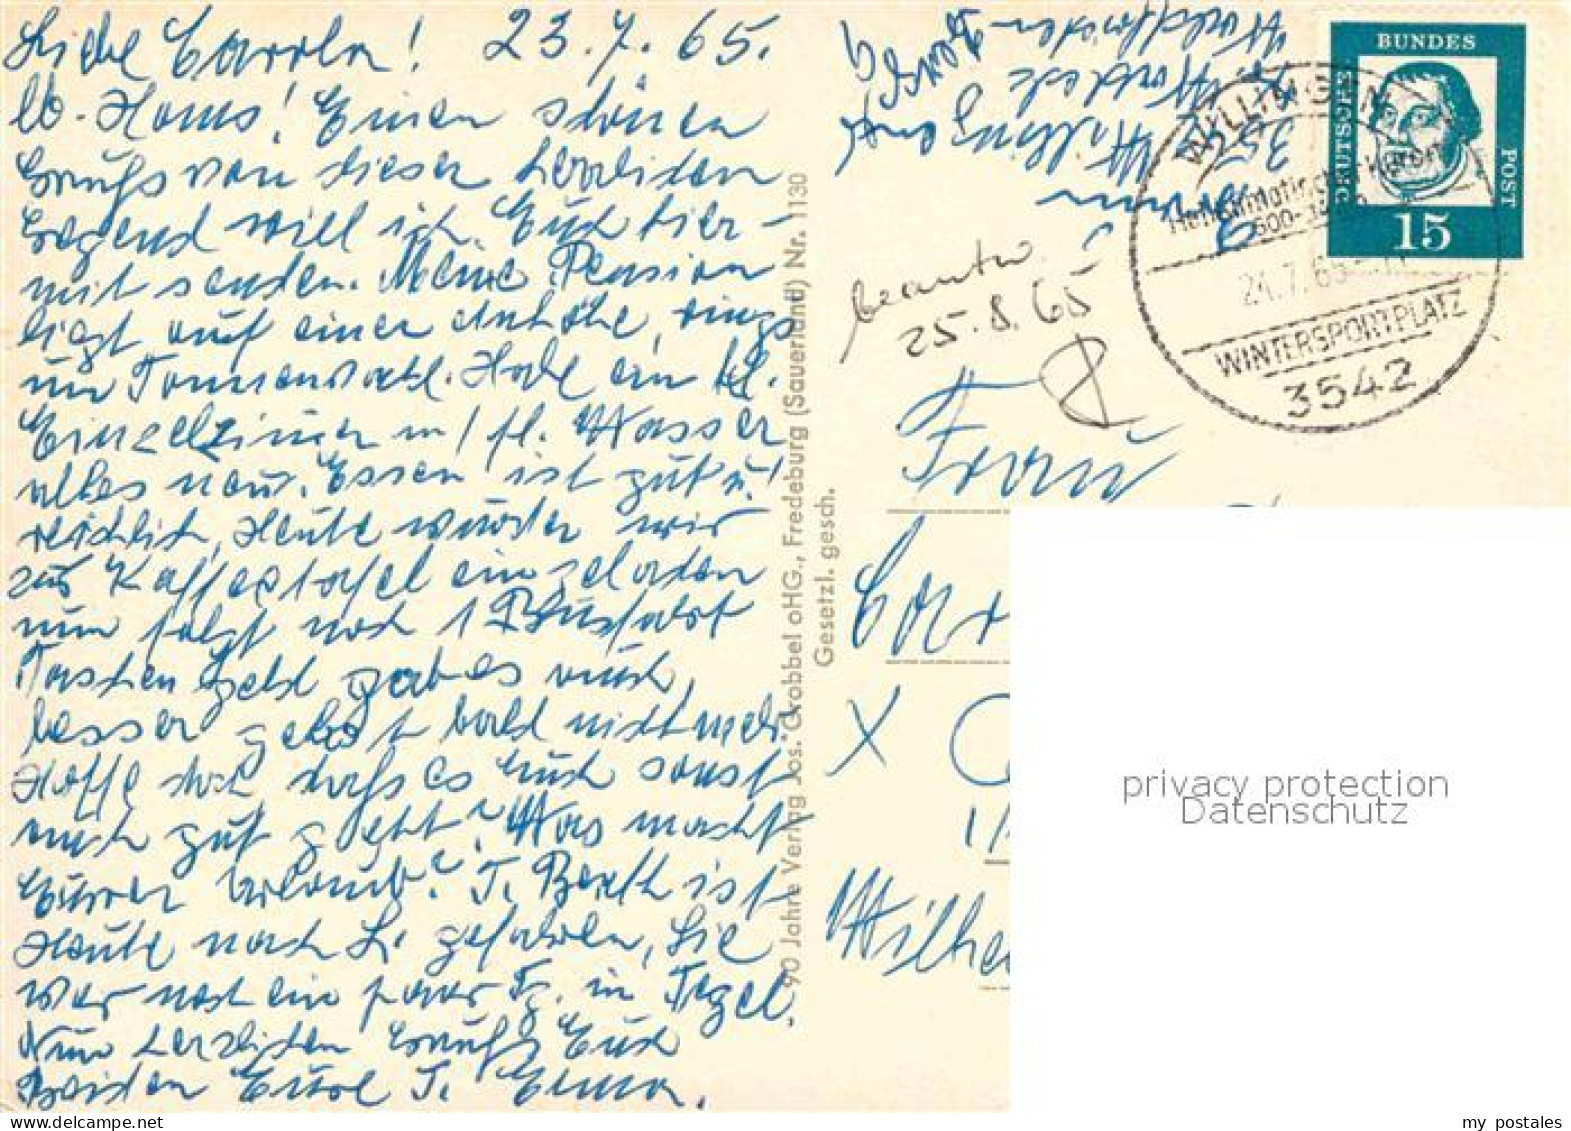 Liebe Carola! 23.7.65.
lb. Hans! Einen schönen
Gruß von dieser herrlichen
Gegend will ich Euch hier-
mit senden. Meine Pension
liegt auf einer Anhöhe, rings
um Tannenwald. Habe ein kl.
Einzelzimmer m/fl. Wasser
alles neu. Essen ist gut u.
reichlich, Heute wurden wir
zur Kaffeetafel eingeladen
nun folgt noch 1 Busfahrt
Taschengeld gab es auch,
besser geht's bald nicht mehr
Hoffe doch daß es Euch sonst
auch gut geht? Was macht
Euer Urlaub? T. Berth ist
Heute nach L. gefahren, Sie
war noch ein paar Tg. in Tegel.
Nun herzlichen Gruß Euch
Beiden Eure T. Emma.
90 Jahre Verlag Jos. Grobbel oHG., Fredeburg (Sauerland) Nr. 1130
Gesetzl. gesch.
Willingen
Waldfrieden
beantw.
25.8.65
DEUTSCHE
BUNDES
POST
15
WILLINGEN
Heilklimatischer Kurort
24.7.65
WINTERSPORTPLATZ
3542
Frau
Car
X
1/
Wilhe
privacy protection
Datenschutz
my_postales